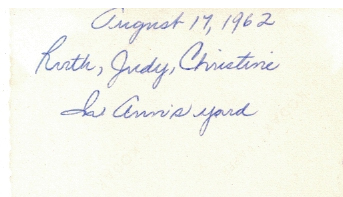 August 17, 1962
Ruth, Judy, Christine
In Ann's yard